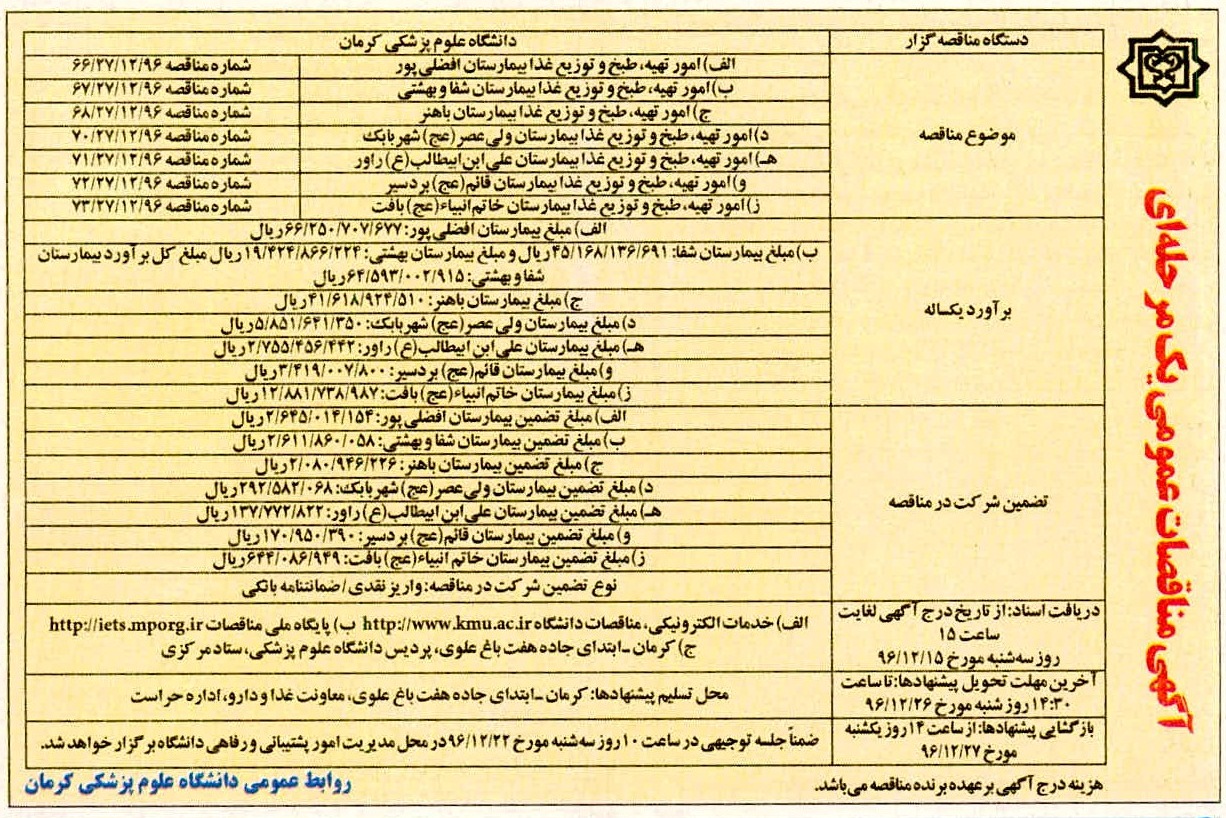 آگهی مناقصات عمومی یک مرحله‌ای
دستگاه مناقصه گزار
دانشگاه علوم پزشکی کرمان
موضوع مناقصه
الف) امور تهیه، طبخ و توزیع غذا بیمارستان افضلی پور
شماره مناقصه ۶۶/۲۷/۱۲/۹۶
ب) امور تهیه، طبخ و توزیع غذا بیمارستان شفا و بهشتی
شماره مناقصه ۶۷/۲۷/۱۲/۹۶
ج) امور تهیه، طبخ و توزیع غذا بیمارستان باهنر
شماره مناقصه ۶۸/۲۷/۱۲/۹۶
د) امور تهیه، طبخ و توزیع غذا بیمارستان ولی عصر (عج) شهربابک
شماره مناقصه ۷۰/۲۷/۱۲/۹۶
هـ) امور تهیه، طبخ و توزیع غذا بیمارستان علی ابن ابیطالب (ع) راور
شماره مناقصه ۷۱/۲۷/۱۲/۹۶
و) امور تهیه، طبخ و توزیع غذا بیمارستان قائم (عج) بردسیر
شماره مناقصه ۷۲/۲۷/۱۲/۹۶
ز) امور تهیه، طبخ و توزیع غذا بیمارستان خاتم انبیاء (عج) بافت
شماره مناقصه ۷۳/۲۷/۱۲/۹۶
برآورد یکساله
الف) مبلغ بیمارستان افضلی پور: ۶۶/۲۵۰/۷۰۷/۶۷۷ ریال
ب) مبلغ بیمارستان شفا: ۴۵/۱۶۸/۱۳۶/۶۹۱ ریال و مبلغ بیمارستان بهشتی: ۱۹/۴۲۴/۸۶۶/۲۲۴ ریال مبلغ کل برآورد بیمارستان
شفا و بهشتی: ۶۴/۵۹۳/۰۰۲/۹۱۵ ریال
ج) مبلغ بیمارستان باهنر: ۴۱/۶۱۸/۹۲۴/۵۱۰ ریال
د) مبلغ بیمارستان ولی عصر (عج) شهربابک: ۵/۸۵۱/۶۴۱/۳۵۰ ریال
هـ) مبلغ بیمارستان علی ابن ابیطالب (ع) راور: ۲/۷۵۵/۴۵۶/۴۴۲ ریال
و) مبلغ بیمارستان قائم (عج) بردسیر: ۳/۴۱۹/۰۰۷/۸۰۰ ریال
ز) مبلغ بیمارستان خاتم انبیاء (عج) بافت: ۱۲/۸۸۱/۷۳۸/۹۸۷ ریال
تضمین شرکت در مناقصه
الف) مبلغ تضمین بیمارستان افضلی پور: ۲/۶۴۵/۰۱۴/۱۵۴ ریال
ب) مبلغ تضمین بیمارستان شفا و بهشتی: ۲/۶۱۱/۸۶۰/۰۵۸ ریال
ج) مبلغ تضمین بیمارستان باهنر: ۲/۰۸۰/۹۴۶/۲۲۶ ریال
د) مبلغ تضمین بیمارستان ولی عصر (عج) شهربابک: ۲۹۲/۵۸۲/۰۶۸ ریال
هـ) مبلغ تضمین بیمارستان علی ابن ابیطالب (ع) راور: ۱۳۷/۷۷۲/۸۲۲ ریال
و) مبلغ تضمین بیمارستان قائم (عج) بردسیر: ۱۷۰/۹۵۰/۳۹۰ ریال
ز) مبلغ تضمین بیمارستان خاتم انبیاء (عج) بافت: ۶۴۴/۰۸۶/۹۴۹ ریال
نوع تضمین شرکت در مناقصه: واریز نقدی / ضمانتنامه بانکی
دریافت اسناد: از تاریخ درج آگهی لغایت
ساعت ۱۵
روز سه‌شنبه مورخ ۹۶/۱۲/۱۵
الف) خدمات الکترونیکی، مناقصات دانشگاه http://www.kmu.ac.ir ب) پایگاه ملی مناقصات http://iets.mporg.ir
ج) کرمان - ابتدای جاده هفت باغ علوی، پردیس دانشگاه علوم پزشکی، ستاد مرکزی
آخرین مهلت تحویل پیشنهادها: تا ساعت
۱۴:۳۰ روز شنبه مورخ ۹۶/۱۲/۲۶
محل تسلیم پیشنهادها: کرمان - ابتدای جاده هفت باغ علوی، معاونت غذا و دارو، اداره حراست
بازگشایی پیشنهادها: از ساعت ۱۴ روز یکشنبه
مورخ ۹۶/۱۲/۲۷
ضمناً جلسه توجیهی در ساعت ۱۰ روز سه‌شنبه مورخ ۹۶/۱۲/۲۲ در محل مدیریت امور پشتیبانی و رفاهی دانشگاه برگزار خواهد شد.
هزینه درج آگهی بر عهده برنده مناقصه می‌باشد.
روابط عمومی دانشگاه علوم پزشکی کرمان